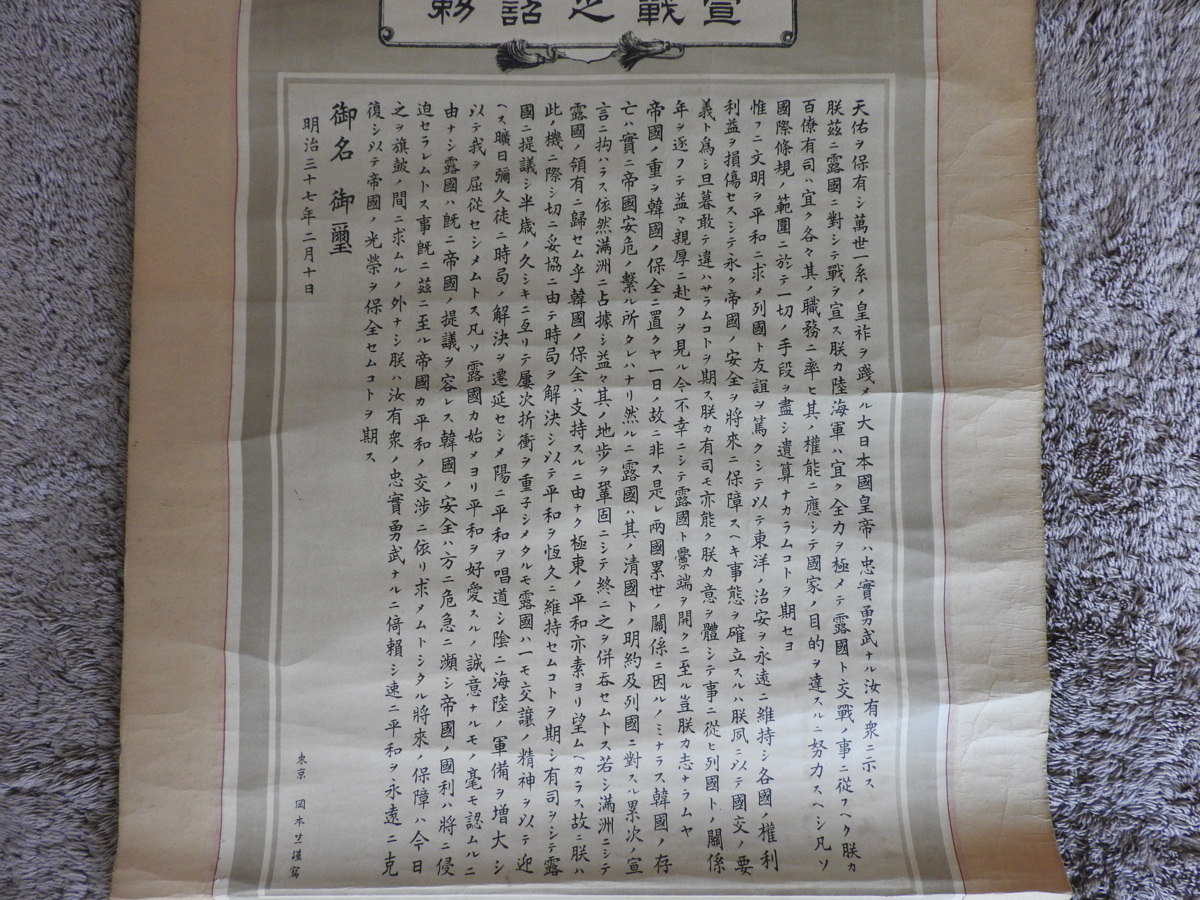 宣戰之詔勅
天佑ヲ保有シ萬世一系ノ皇祚ヲ踐メル大日本國皇帝ハ忠實勇武ナル汝有衆ニ示ス
朕茲ニ露國ニ對シテ戰ヲ宣ス朕カ陸海軍ハ宜ク全力ヲ極メテ露國ト交戰ノ事ニ從フヘク朕カ
百僚有司ハ宜ク各々其ノ職務ニ率ヒ其ノ權能ニ應シテ國家ノ目的ヲ達スルニ努力スヘシ凡ソ
國際條規ノ範圍ニ於テ一切ノ手段ヲ盡シ遺算ナカラムコトヲ期セヨ
惟フニ文明ヲ平和ニ求メ列國ト友誼ヲ篤クシテ以テ東洋ノ治安ヲ永遠ニ維持シ各國ノ權利
利益ヲ損傷セスシテ永ク帝國ノ安全ヲ將來ニ保障スヘキ事態ヲ確立スルハ朕夙ニ以テ國交ノ要
義ト爲シ旦暮敢テ違ハサラムコトヲ期ス朕カ有司モ亦能ク朕カ意ヲ體シテ事ニ從ヒ列國トノ關係
年ヲ逐フテ益々親厚ニ赴クヲ見ル今不幸ニシテ露國ト釁端ヲ開クニ至ル豈朕カ志ナラムヤ
帝國ノ重ヲ韓國ノ保全ニ置クヤ一日ノ故ニ非ス是レ兩國累世ノ關係ニ因ルノミナラス韓國ノ存
亡ハ實ニ帝國安危ノ繫ル所タレハナリ然ルニ露國ハ其ノ清國トノ明約及列國ニ對スル累次ノ宣
言ニ拘ハラス依然滿洲ニ占據シ益々其ノ地步ヲ鞏固ニシテ終ニ之ヲ併呑セムトス若シ滿洲ニシテ
露國ノ領有ニ歸セム乎韓國ノ保全ハ支持スルニ由ナク極東ノ平和亦素ヨリ望ムヘカラス故ニ朕ハ
此ノ機ニ際シ切ニ妥協ニ由テ時局ヲ解決シ以テ平和ヲ恆久ニ維持セムコトヲ期シ有司ヲシテ露
國ニ提議シ半歳ノ久シキニ亙リテ屢次折衝ヲ重子シメタルモ露國ハ一モ交讓ノ精神ヲ以テ迎
ヘス曠日彌久徒ニ時局ノ解決ヲ遷延セシメ陽ニ平和ヲ唱道シ陰ニ海陸ノ軍備ヲ增大シ
以テ我ヲ屈從セシメムトス凡ソ露國カ始メヨリ平和ヲ好愛スルノ誠意ナルモノ毫モ認ムルニ
由ナシ露國ハ既ニ帝國ノ提議ヲ容レス韓國ノ安全ハ方ニ危急ニ瀕シ帝國ノ國利ハ將ニ侵
迫セラレムトス事既ニ茲ニ至ル帝國カ平和ノ交涉ニ依リ求メムトシタル將來ノ保障ハ今日
之ヲ旗鼓ノ間ニ求ムルノ外ナシ朕ハ汝有衆ノ忠實勇武ナルニ倚賴シ速ニ平和ヲ永遠ニ克
復シ以テ帝國ノ光榮ヲ保全セムコトヲ期ス
御名 御璽
明治三十七年二月十日
東京 岡本 謹寫